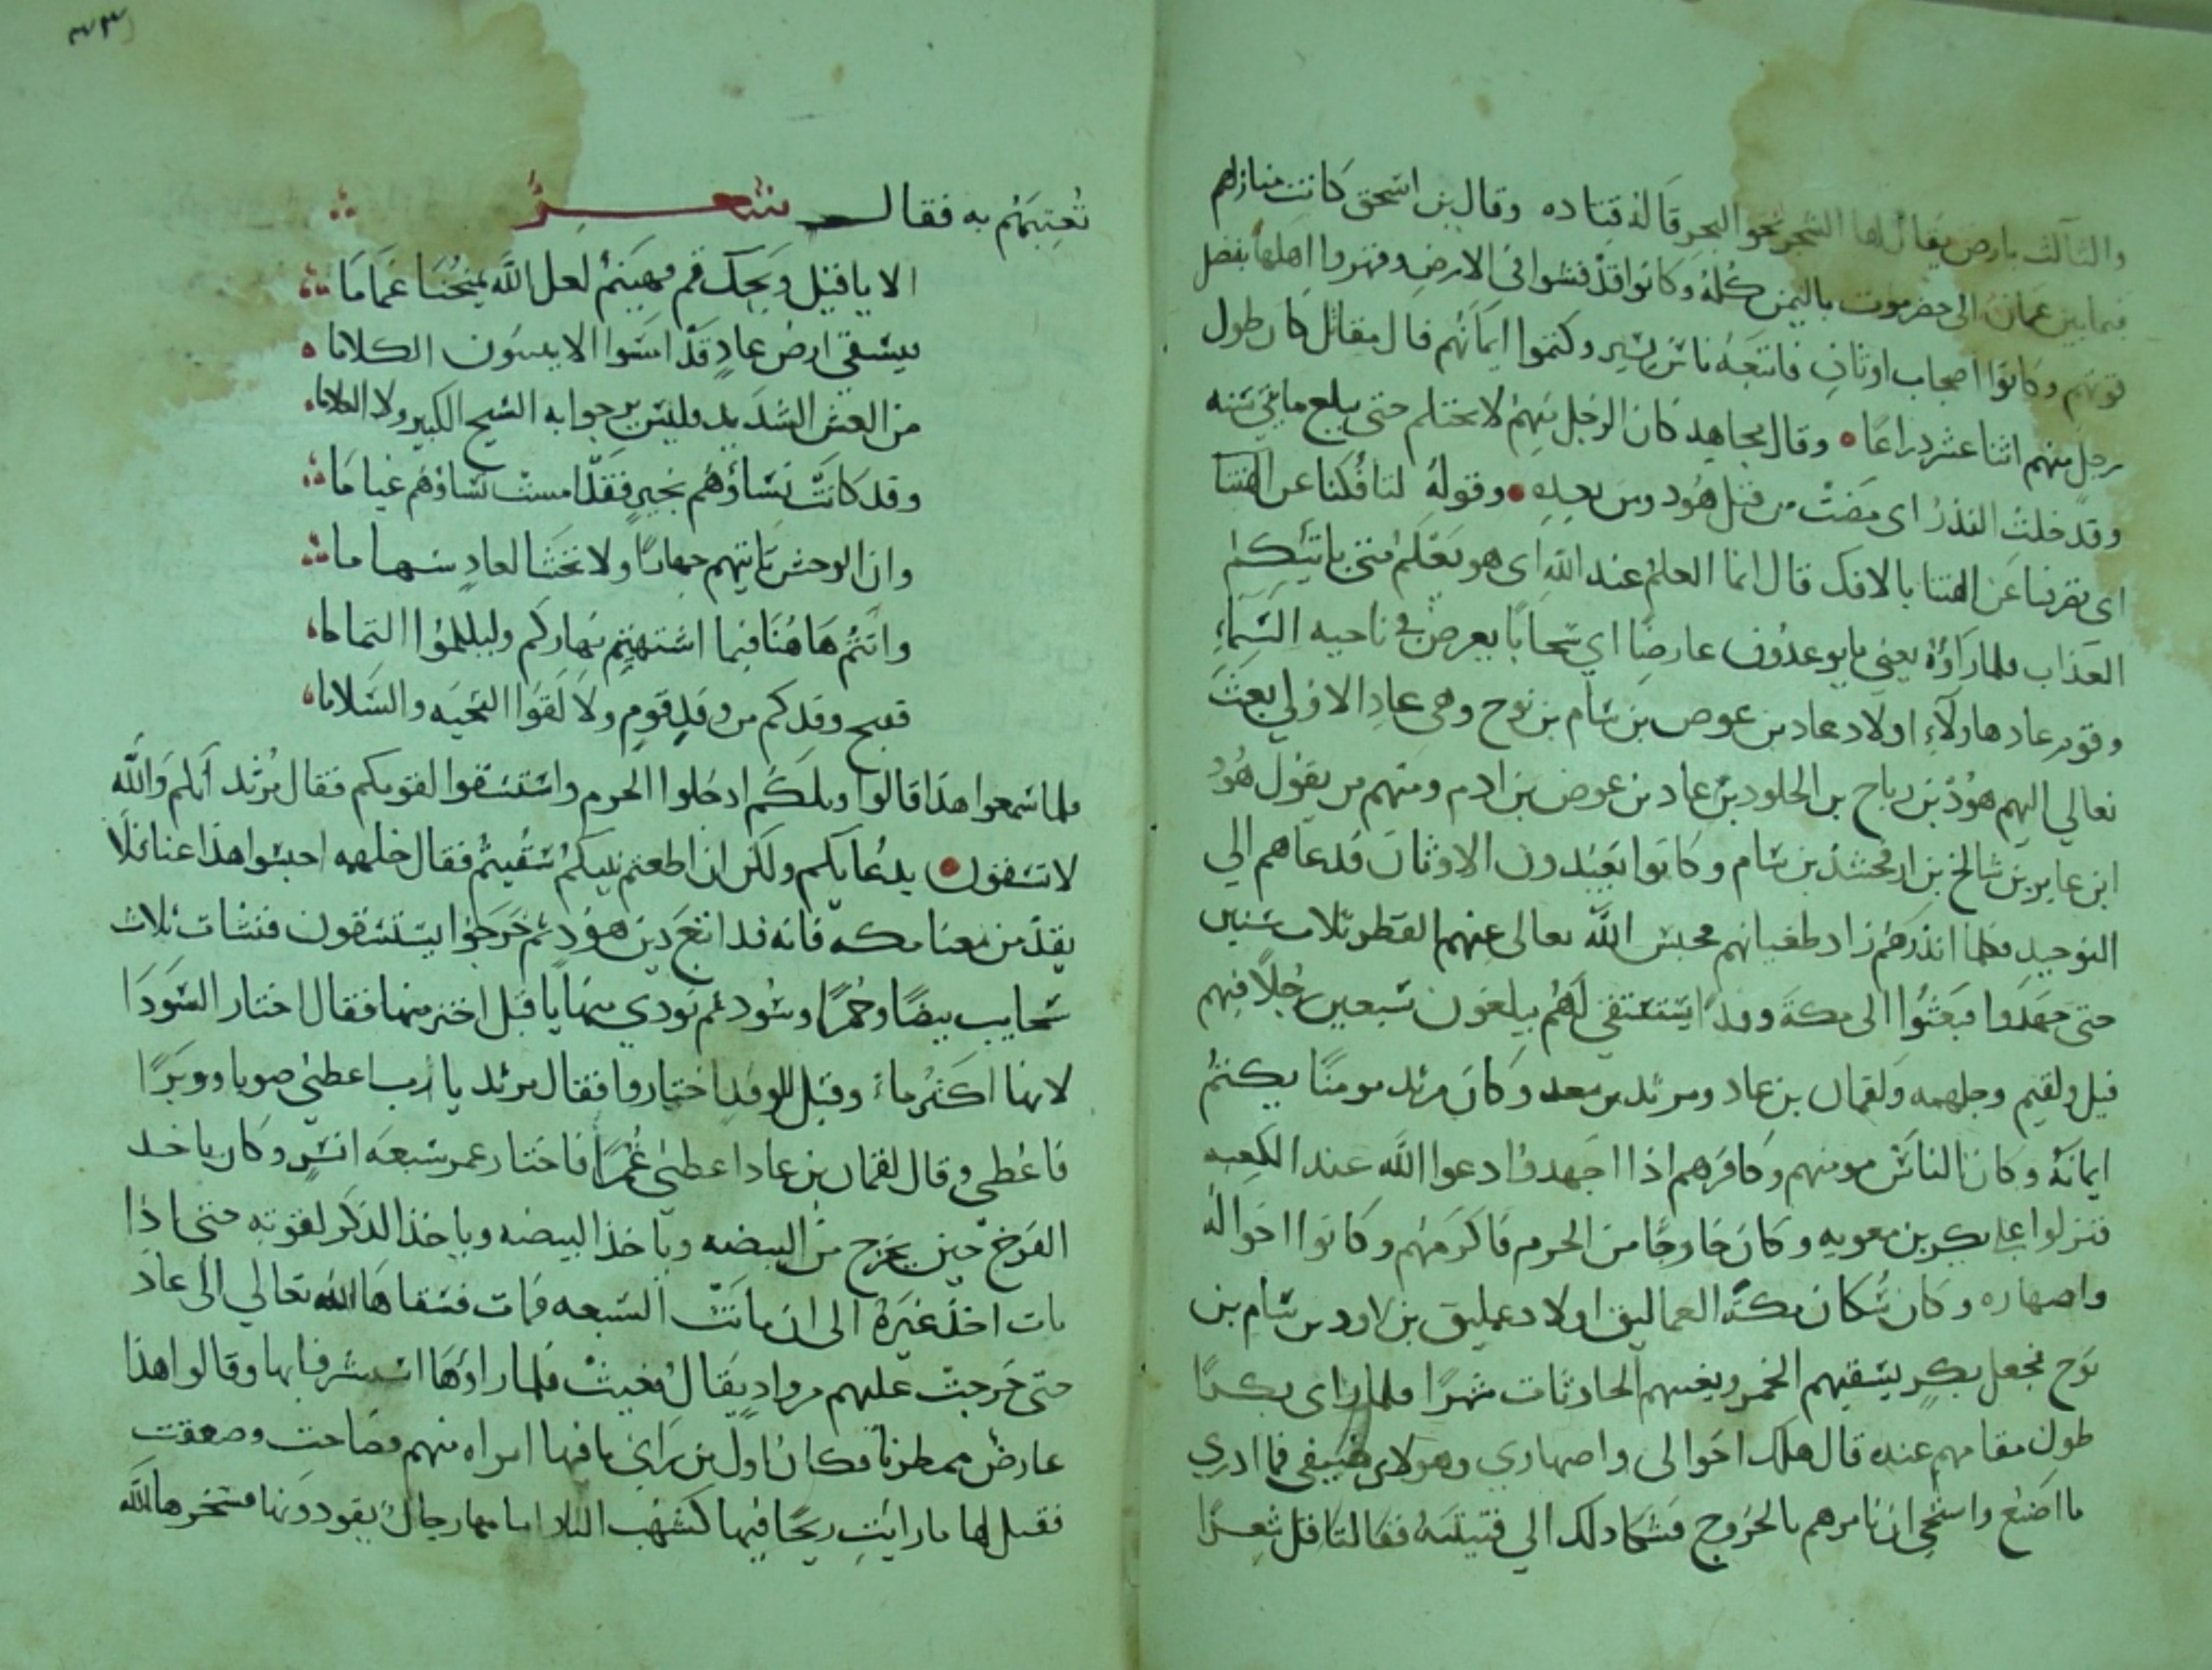 والثالث بارض يقال لها الشحر نحو البحر قاله قتاده وقال بن اسحق كانت منازلهم
فيما بين عمان الى حضرموت باليمن كله وكانوا قد فشوا في الارض وقهروا اهلها بفضل
قوتهم وكانوا اصحاب اوثان فاتبعه ناس يسير وكتموا ايمانهم قال مقاتل كان طول
رجل منهم اثنا عشر ذراعا وقال مجاهد كان الرجل منهم لا يحتلم حتى يبلغ مايتي سنه
وقد خلت النذر اى مضت من قبل هود ومن بعده وقوله لتافكنا عن الهتنا
اى تصرفنا عن الهتنا بالافك قال انما العلم عند الله اى هو يعلم متى ياتيكم
العذاب فلما راوه يعني ما يوعدون عارضا اي سحابا يعرض في ناحيه السماء
وقوم عاد هاولاء اولاد عاد بن عوص بن سام بن نوح وهى عاد الاولي بعث
تعالي اليهم هود بن رباح بن الخلود بن عاد بن عوض بن ادم ومنهم من يقول هود
ابن عابر بن شالخ بن ارفخشد بن سام وكانوا يعبدون الاوثان فدعاهم الي
التوحيد فلما انذرهم زاد طغيانهم فحبس الله تعالى عنهم القطر ثلاث سنين
حتى جهدوا فبعثوا الى مكة وفدا يستسقي لهم يبلغون سبعين رجلا فيهم
قيل ولقيم وجلهمه ولقمان بن عاد ومرثد بن سعد وكان مرثد مومنا يكتم
ايمانه وكان الناس مومنهم وكافرهم اذا اجهدوا دعوا الله عند الكعبه
فنزلوا على بكر بن معويه وكان خارجا من الحرم فاكرمهم وكانوا اخواله
واصهاره وكان سكان مكة العماليق اولاد عمليق بن لاود بن سام بن
نوح فجعل بكر يسقيهم الخمر ويغنيهم الحادثات شهرا فلما راى بكرا
طول مقامهم عنده قال هلك اخوالى واصهاري وهولاء ضيفي فما ادري
ما اصنع واستحي ان نامرهم بالخروج فشكا ذلك الي قينتيه فقالتا قل شعرا
تغنيهم به فقال شعر
الا يا قيل ويحك قم فهينم لعل الله يمنحنا غماما
فيسقي ارض عاد قد امسوا لا يبينون الكلاما
من العطش الشديد فليس يرجوا به الشيخ الكبير ولا الغلاما
وقد كانت نساؤهم بخير فقد امست نساؤهم عياما
وان الوحش تاتيهم جهارا ولا تخشا لعاد سهاما
وانتم هاهنا فيما اشتهيتم نهاركم وليلكموا التماما
فقبح وفدكم من وفد قوم ولا لقوا التحيه والسلاما
فلما سمعوا هذا قالوا ويلكم ادخلوا الحرم واستسقوا لقومكم فقال مرثد انكم والله
لا تسقون بدعايكم ولكن ان اطعتم نبيكم سقيتم فقال جلهمه احبسوا هذا عنا فلا
يقدمن معنا مكه فانه قد اتبع دين هود ثم خرجوا يستسقون فنشات ثلاث
سحايب بيضا وحمرا وسود ثم نودي منها يا قيل اختر منها فقال اختار السودا
لانها اكثر ماء وقيل للوفد اختاروا فقال مرثد يا رب اعطيني صوبا وبرا
فاعطي وقال لقمان بن عاد اعطني عمرا فاختار عمر سبعه انسر وكان ياخذ
الفرخ حين يخرج من البيضه وياخذ البيضه وياخذ الذكر لقوته حتى اذا
مات اخذ غيره الى ان ماتت السبعه فمات فسقاها الله تعالي الى عاد
حتى خرجت عليهم من واد يقال مغيث فلما راوها استبشروا بها وقالوا هذا
عارض ممطرنا فكان اول من راى ما فيها امراه منهم فصاحت وصعقت
فقيل لها ما رايت ريحا فيها كشهب النار امامها رجال يقودونها فسخرها الله